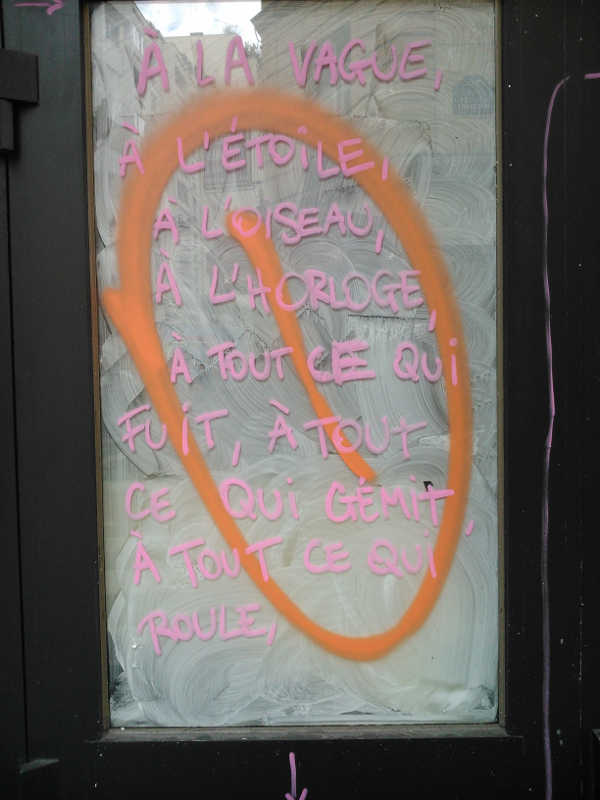 À LA VAGUE,
À L'ÉTOiLE,
À L'OISEAU,
À L'HORLOGE,
À TOUT CE QUi
FUiT, À TOUT
CE QUi GÉMiT,
À TOUT CE QUi
ROULE,